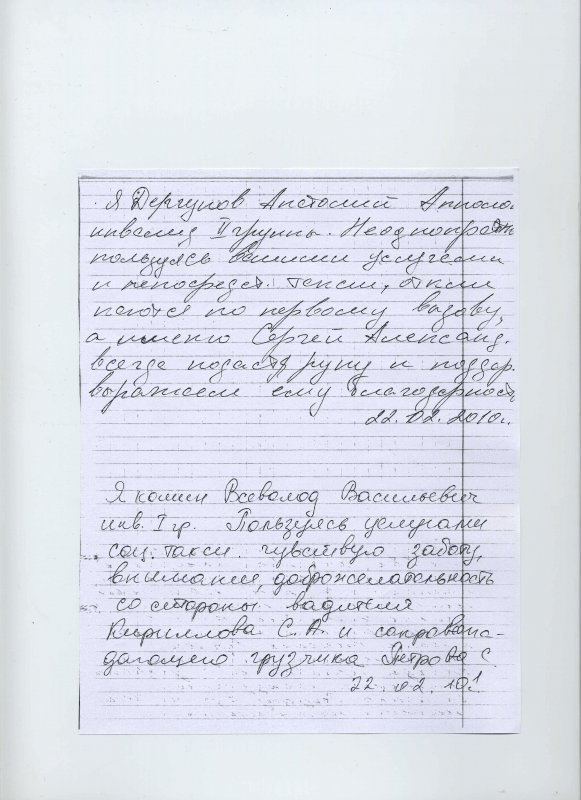 Я Дергунов Анатолий Апполо.
инвалид II группы. Неоднократн
пользуясь вашими услугами
и непосредст. такси, откли
каются по первому вызову,
а именно Сергей Александ.
всегда подастя руку и поддер.
выражаем ему благодарность
22.02.2010г.
Я комин Всеволод Васильевич
инв. I гр. Пользуясь услугами
соц. такси. чувствую заботу,
внимание, доброжелательность
со стороны вадителя
Кириллова С.А. и сапровож-
дающего грузчика Петрова С
22.02.10